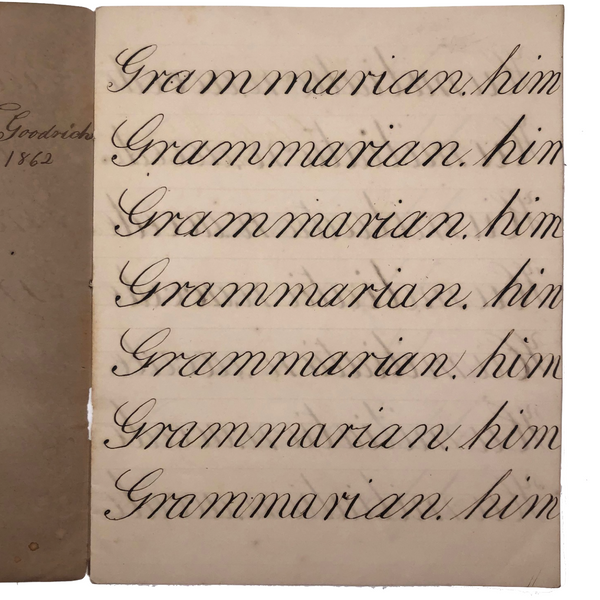 Goodrich
1862
Grammarian. him
Grammarian. hin
Grammarian. him
Grammarian. hin
Grammarian. him
Grammarian. him
Grammarian. him